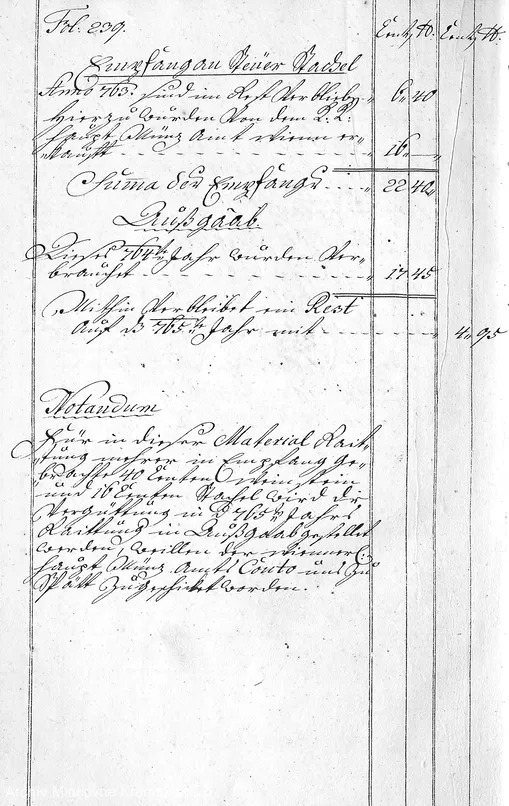 Fol. 239.
Centr ℔. Centr ℔.
Empfang an Steüer Stachel
Anno 763. sind im Rest Verblieben 6 " 40
Hierzu wurden Von dem K: K:
Haupt Münz Amt Wienn er-
kaufft - - - 16 " —
Summa der Empfangs - - - 22 40
Außgaab.
Dieses 764te Jahr wurden Ver-
brauchet - - - 17 45
Mithin Verbleibet ein Rest
Auf d. 765te Jahr mit - - - 4 " 95
Notandum
Für in dieser Material Rait-
tung mehrer in Empfang ge-
brachte 40 Centen Weinstein
und 16 Centen Stachel wird die
Vergüttung in d 765te Jahrs
Raittung in Außgaab gestellet
werden, weillen der Wienner
Haupt Münz Amts Conto uns Zu
Spätt Zugeschicket worden.